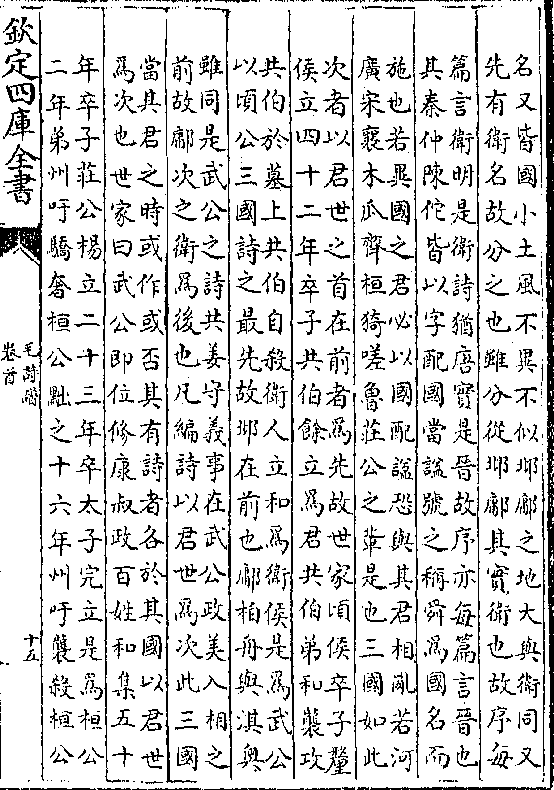 名又皆國小土風不異不似邶鄘之地大與衛同又
先有衛名故分之也雖分從邶鄘其實衛也故序每
篇言衛明是衛詩猶唐實是晉故序亦每篇言晉也
其秦仲陳佗皆以字配國當謚號之稱舜爲國名而
施也若異國之君必以國配謚恐與其君相亂若河
廣宋襄木瓜齊桓猗嗟魯莊公之輩是也三國如此
次者以君世之首在前者爲先故世家頃侯卒子釐
侯立四十二年卒子共伯餘立爲君共伯弟和襲攻
共伯於墓上共伯自殺衛人立和爲衛侯是爲武公
以頃公三國詩之最先故邶在前也鄘柏舟與淇奧
雖同是武公之詩共姜守義事在武公政美入相之
前故鄘次之衛爲後也凡編詩以君世爲次此三國
當其君之時或作或否其有詩者各於其國以君世
爲次也世家曰武公即位修康叔政百姓和集五十
年卒子莊公楊立二十三年卒太子完立是爲桓公
二年弟州吁驕奢桓公黜之十六年州吁襲殺桓公
欽定四庫全書
毛詩譜
卷首
十五